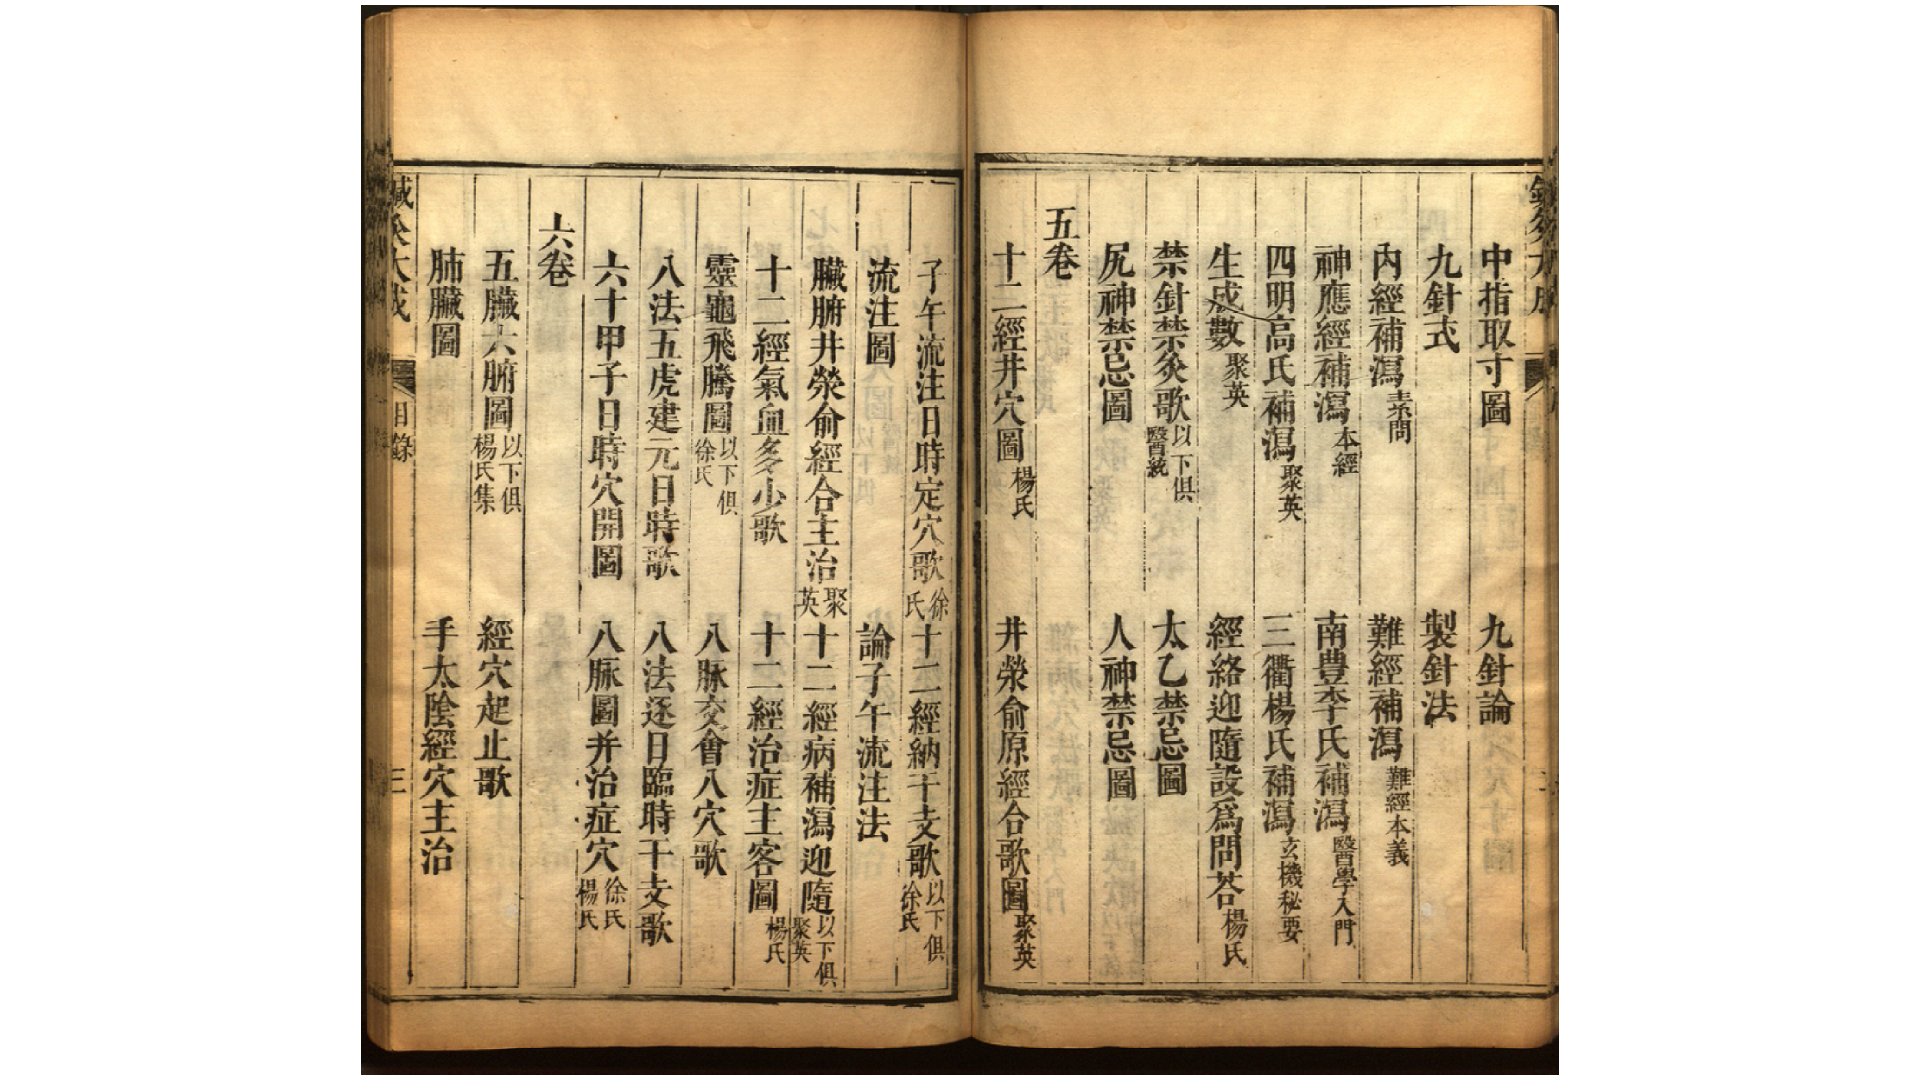 中指取寸圖 九針論
九針式 製針法
內經補瀉 素問 難經補瀉 難經本義
神應經補瀉 本經 南豊李氏補瀉 醫學入門
四明高氏補瀉 聚英 三衢楊氏補瀉 玄機秘要
生成數 聚英 經絡迎隨設爲問荅 楊氏
禁針禁灸歌 以下俱醫統 太乙禁忌圖
尻神禁忌圖 人神禁忌圖
五卷
十二經井穴圖 楊氏 井滎俞原經合歌圖 聚英
子午流注日時定穴歌 徐氏 十二經納干支歌 以下俱徐氏
流注圖 論子午流注法
臟腑井滎俞經合主治 聚英 十二經病補瀉迎隨 以下俱聚英
十二經氣血多少歌 十二經治症主客圖 楊氏
靈龜飛騰圖 以下俱徐氏 八脉交會八穴歌
八法五虎建元日時歌 八法逐日臨時干支歌
六十甲子日時穴開圖 八脈圖并治症穴 徐氏楊氏
六卷
五臟六腑圖 以下俱楊氏集 經穴起止歌
肺臟圖 手太陰經穴主治
鍼灸大成 目錄 三